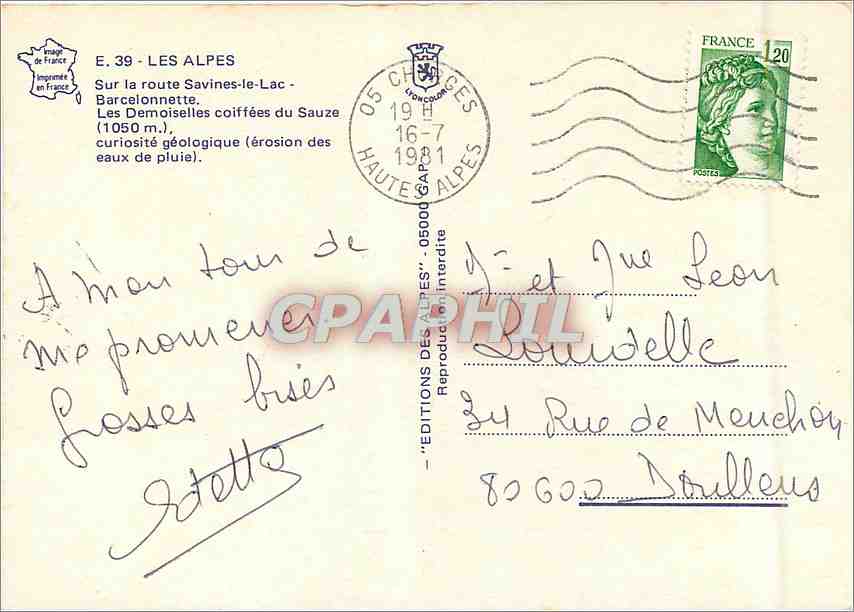 Image
de France
Imprimée
en France
E. 39 - LES ALPES
Sur la route Savines-le-Lac -
Barcelonnette.
Les Demoiselles coiffées du Sauze
(1050 m.),
curiosité géologique (érosion des
eaux de pluie).
LYONCOLOR
05 CHORGES
19 H
16-7
1981
HAUTES ALPES
FRANCE 1,20
POSTES
A mon tour de
me promener
Grosses bises
CPAPHIL
— "EDITIONS DES ALPES" - 05000 GAP
Reproduction interdite
et Leon
34 Rue de Menchon
80600 Doullens